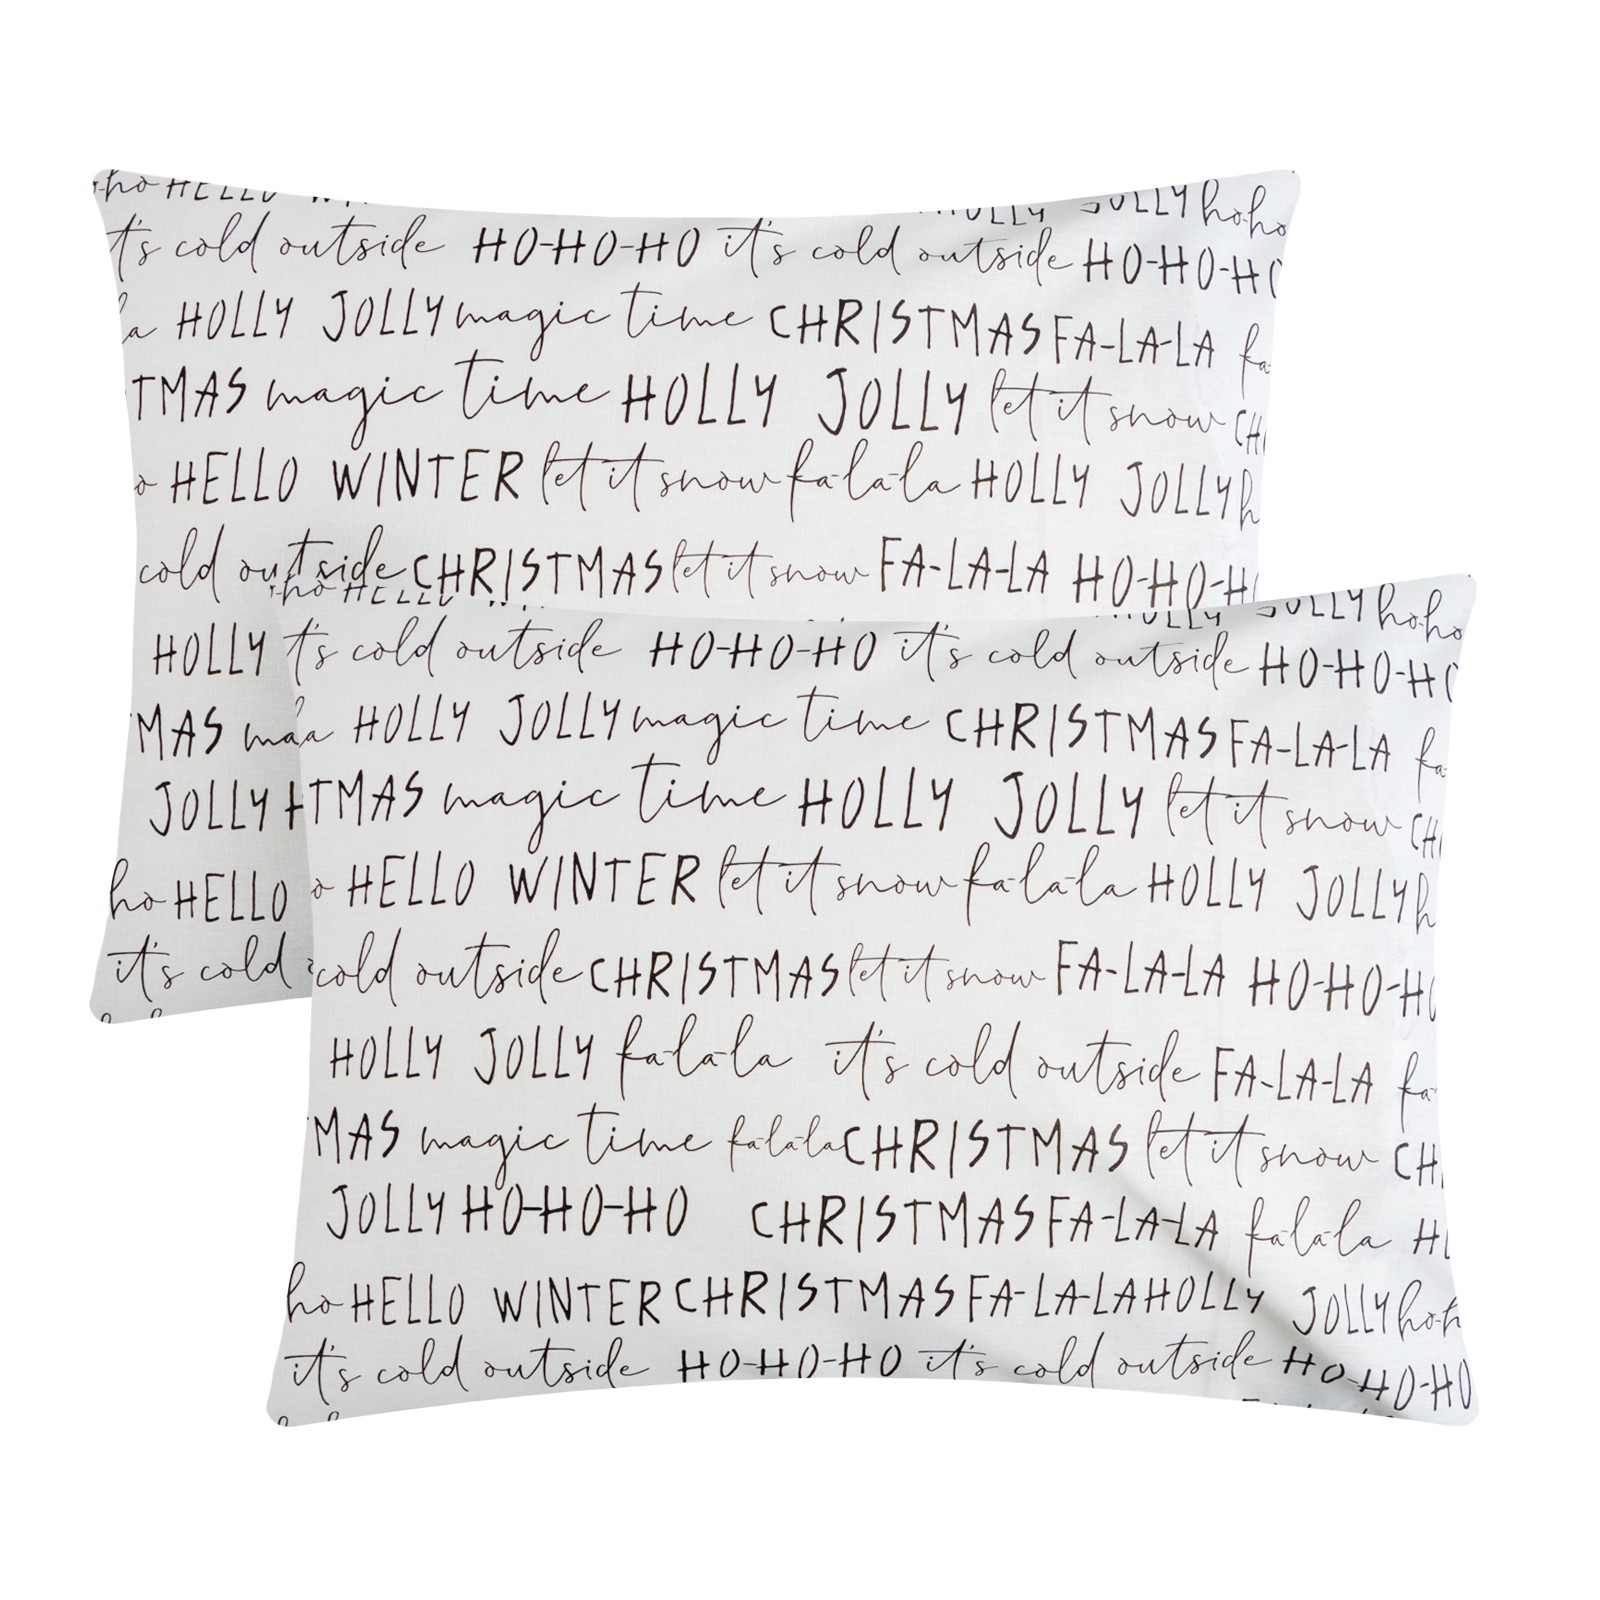 ho HELLO
it's cold outside HO-HO-HO it's cold outside HO-HO-HO
la HOLLY JOLLY magic time CHRISTMAS FA-LA-LA fa-
TMAS magic time HOLLY JOLLY let it snow CH
o HELLO WINTER let it snow fa-la-la HOLLY JOLLY h
cold outside CHRISTMAS let it snow FA-LA-LA HO-HO-HO
HOLLY
MAS ma
JOLLY H
ho HELLO
it's cold
ho HELLO
HOLLY JOLLY ho-ho
it's cold outside HO-HO-HO it's cold outside HO-HO-HO
a HOLLY JOLLY magic time CHRISTMAS FA-LA-LA fa-
TMAS magic time HOLLY JOLLY let it snow CH
o HELLO WINTER let it snow fa-la-la HOLLY JOLLY h
cold outside CHRISTMAS let it snow FA-LA-LA HO-HO-HO
HOLLY JOLLY fa-la-la it's cold outside FA-LA-LA fa-
MAS magic time fa-la-la CHRISTMAS let it snow CH
JOLLY HO-HO-HO CHRISTMAS FA-LA-LA fa-la-la H
ho HELLO WINTER CHRISTMAS FA-LA-LA HOLLY JOLLY ho-h
it's cold outside HO-HO-HO it's cold outside HO-HO-HO